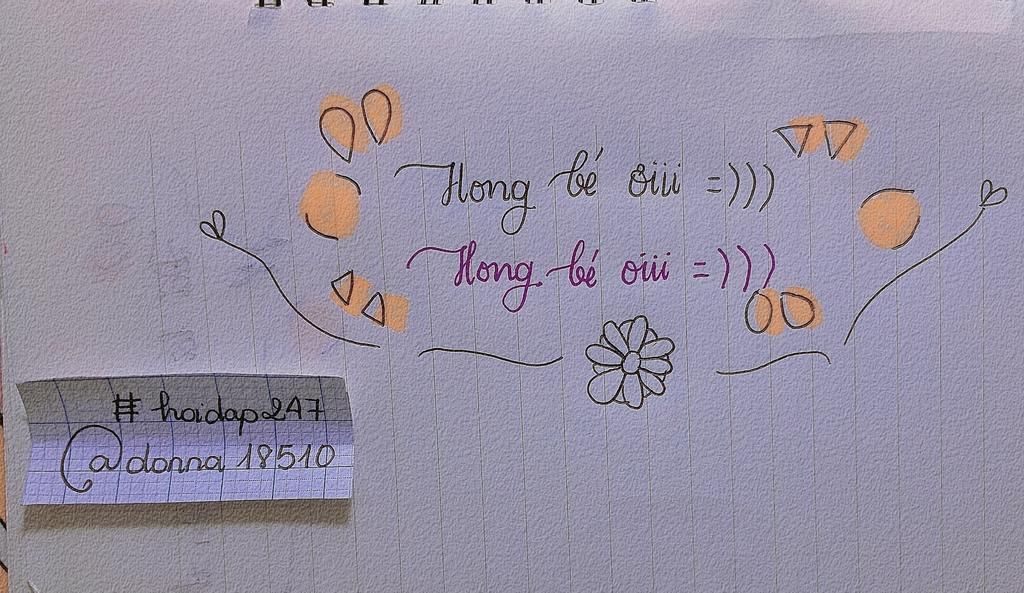 Hong bé ơiii =)))
Hong bé ơiii =)))
# hoidap247
@donna 18510